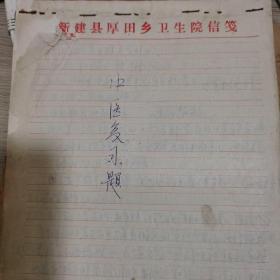 新建县厚田乡卫生院信笺
中医复习题